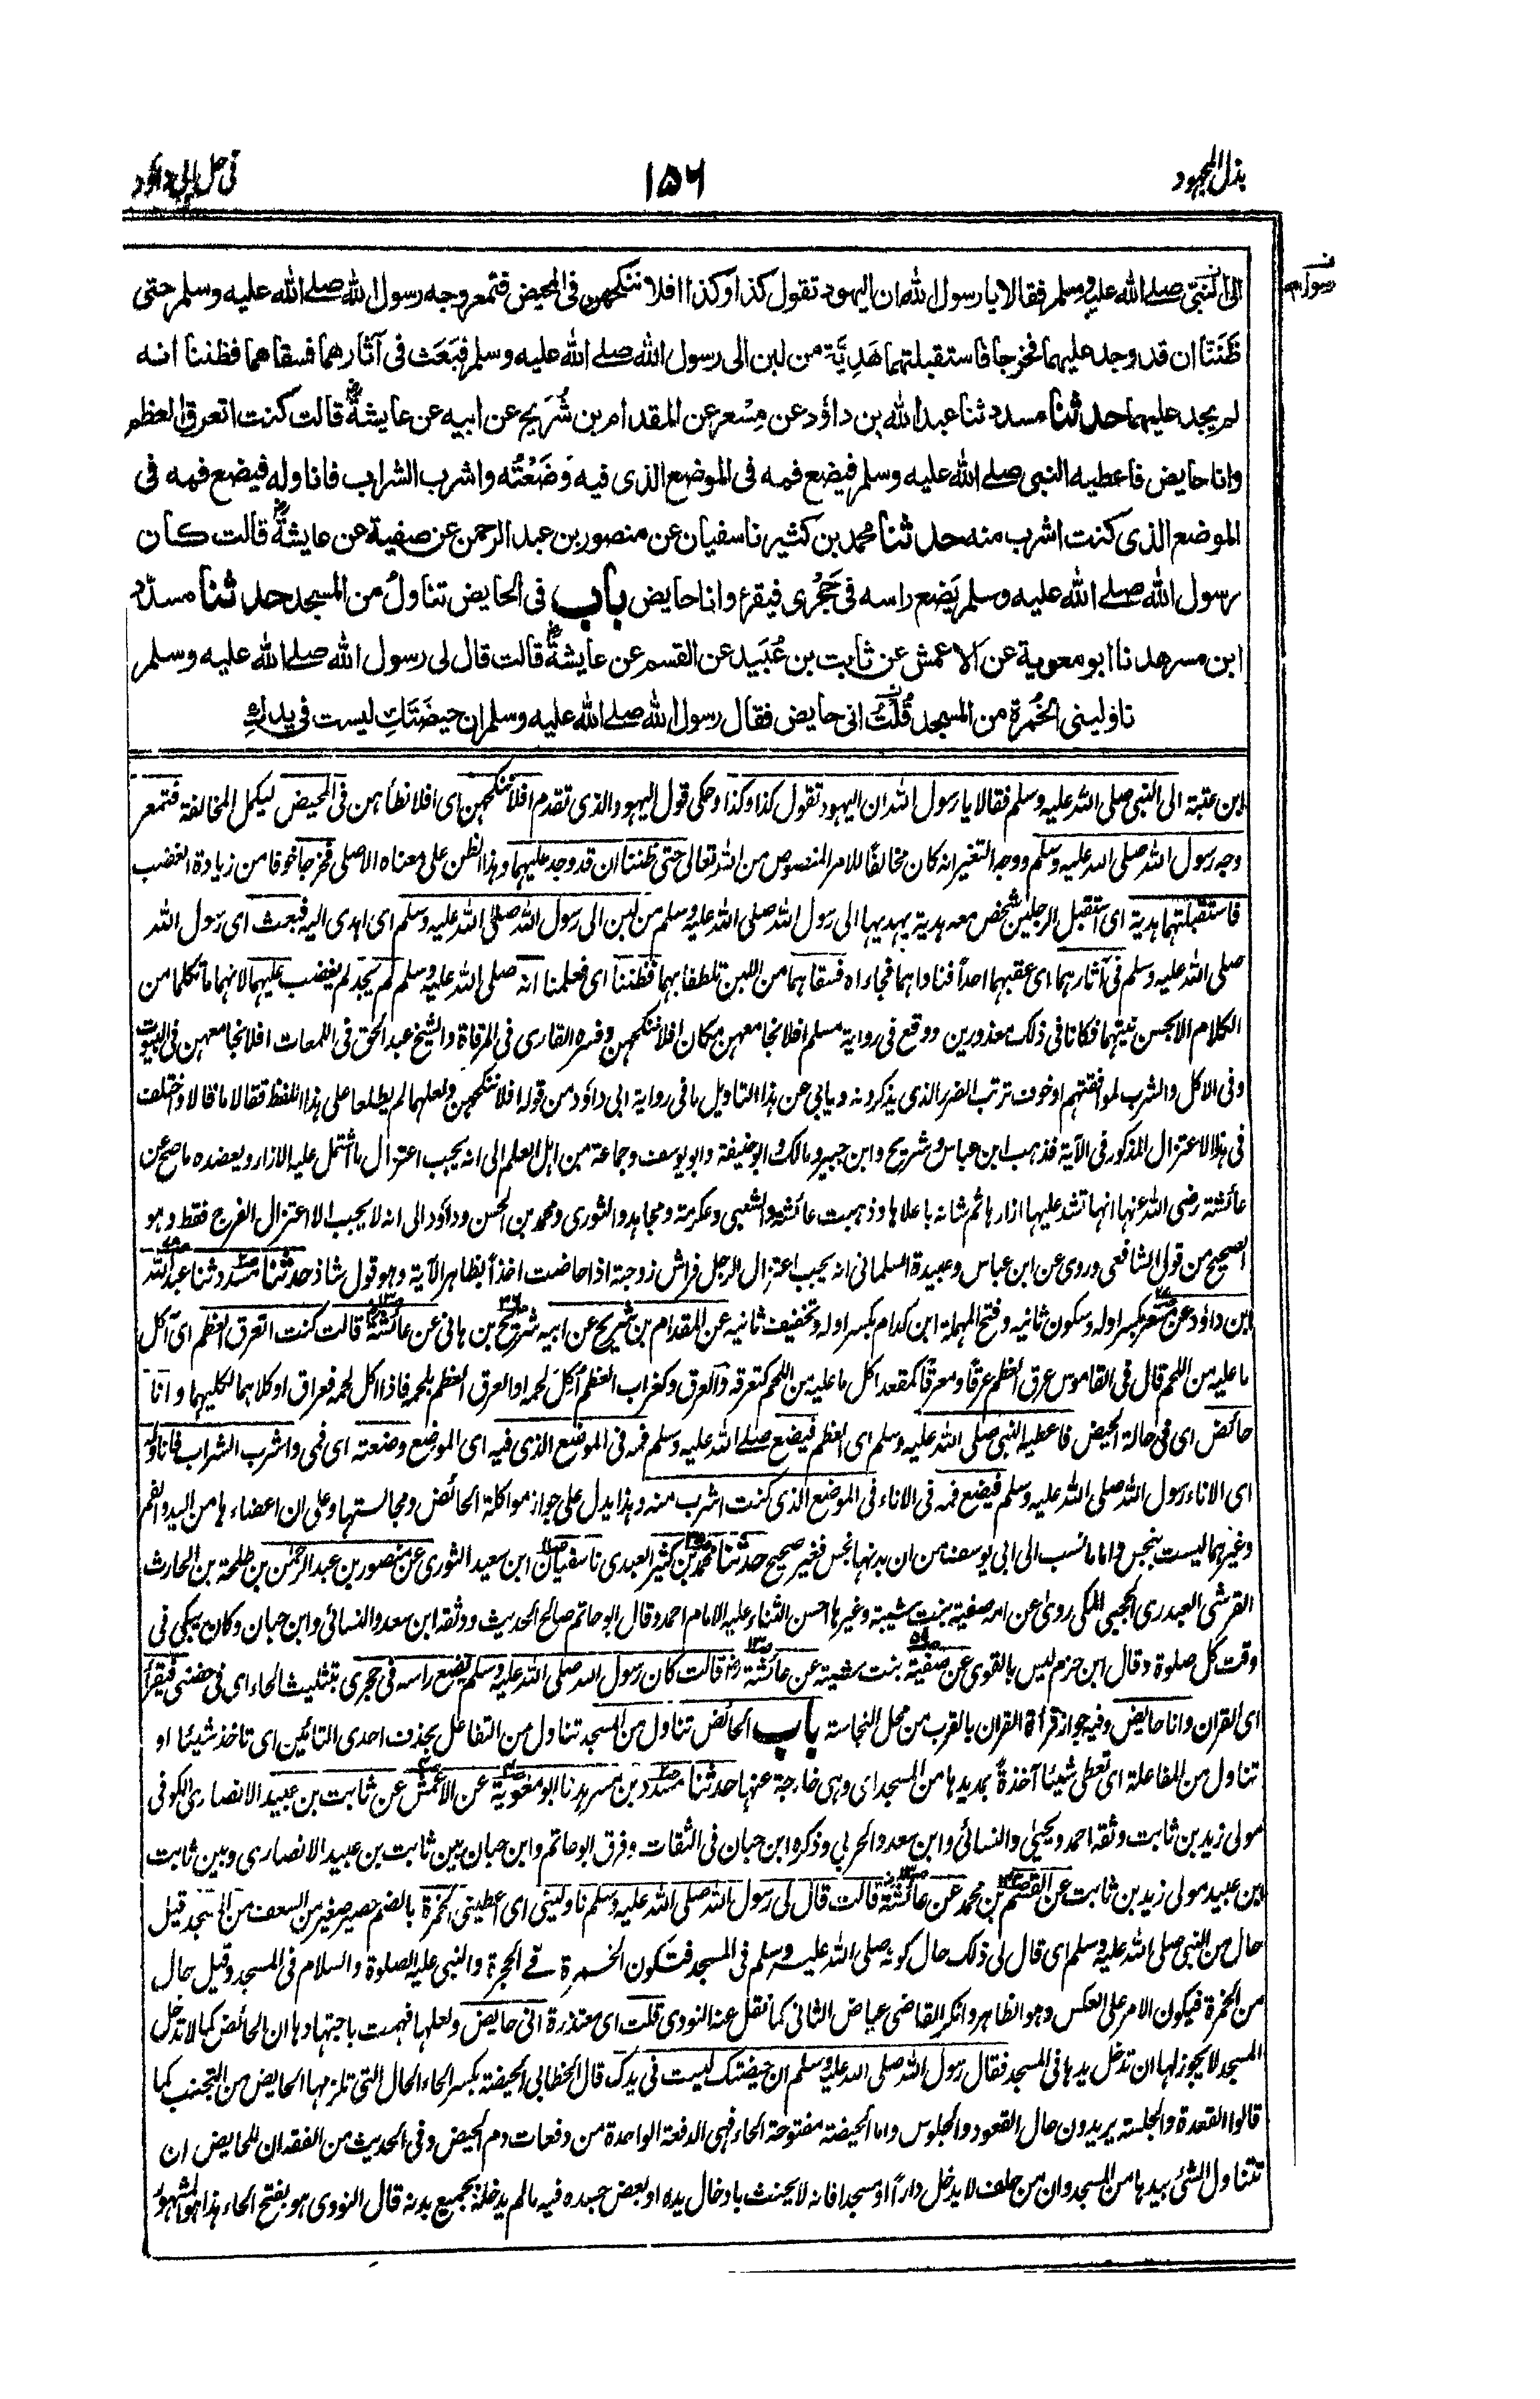 بذل المجهود
١٥٦
فی حل ابی داؤد
رسول اللہ
الی النبی صلے الله علیہ وسلم فقالا یا رسول الله ان الیهود تقول کذا وکذا افلا ننکحهن فی المحیض فتمعر وجه رسول الله صلے الله علیه وسلم حتی
ظَنَنَّا ان قد وجد علیهما فخرجا فاستقبلتهما هَدِیَّة من لبن الی رسول الله صلے الله علیه وسلم فبَعَث فی آثارهما فسقاهما فظننا انه
لم یجد علیهما حدثنا مسدد ثنا عبد الله بن داؤد عن مِسْعر عن المقدام بن شُرَیح عن ابیه عن عایشةؓ قالت کنت اتعرق العظم
وانا حایض فاعطیه النبی صلے الله علیه وسلم فیضع فمه فی الموضع الذی فیه وَضَعْتُه واشرب الشراب فاناوله فیضع فمه فی
الموضع الذی کنت اشرب منه حدثنا محمد بن کثیر نا سفیان عن منصور بن عبد الرحمن عن صفیة عن عایشةؓ قالت کان
رسول الله صلے الله علیه وسلم یَضع راسه فی حَجْرِی فیقرء وانا حایض باب فی الحایض تناولُ من المسجد حدثنا مسدد
ابن مسرهد نا ابو معویة عن الاعمش عن ثابت بن عُبَید عن القسم عن عایشةؓ قالت قال لی رسول الله صلے الله علیه وسلم
ناولینی الخُمرة من المسجد قُلْتُ انی حایض فقال رسول الله صلے الله علیه وسلم ان حیضَتَكِ لیست فی یدكِ
ابن عتبة الی النبی صلی اللہ علیہ وسلم فقالا یا رسول اللہ ان الیہود تقول کذا وکذا وحکی قول الیہود والذی تقدم افلا ننکحہن ای افلا نطأہن فی المحیض لیکمل المخالفة فتمعر
وجہ رسول اللہ صلی اللہ علیہ وسلم ووجہ التغیر انہ کان مخالفًا للامر المنصوص من اللہ تعالی حتی ظننا ان قد وجد علیہما وہذا الظن علی معناہ الاصلی فخرجا خوفا من زیادة الغضب
فاستقبلتہما ہدیة ای استقبل الرجلین شخص معہ ہدیة یہدیہا الی رسول اللہ صلی اللہ علیہ وسلم من لبن الی رسول اللہ صلی اللہ علیہ وسلم ای اہدی الیہ فبعث ای رسول اللہ
صلی اللہ علیہ وسلم فی آثارہما ای عقبہما احداً فناداہما فجاءاہ فسقاہما من اللبن تلطفا بہما فظننا ای فعلمنا انہ صلی اللہ علیہ وسلم لم یجد لم یغضب علیہما لانہما ما تکلما من
الکلام الا بحسن نیتہما فکانا فی ذلک معذورین ووقع فی روایة مسلم افلا نجامعہن مکان افلا ننکحہن وفسرہ القاری فی المرقاة والشیخ عبد الحق فی اللمعات افلا نجامعہن فی البیوت
وفی الاکل والشرب لموافقتہم او خوف ترتب الضرر الذی یذکرونہ ویابی عن ہذا التاویل ما فی روایة ابی داؤد من قولہ افلا ننکحہن ولعلہما لم یطلعا علی ہذا اللفظ فقالا ما قالا واختلف
فی ہذا الاعتزال المذکور فی الآیة فذہب ابن عباس وشریح وابن جبیر ومالک وابو حنیفة وابو یوسف وجماعة من اہل العلم الی انہ یجب اعتزال ما اشتمل علیہ الازار ویعضدہ ما صح عن
عائشة رضی اللہ عنہا انہا تشد علیہا ازارہا ثم شانہ باعلاہا وذہبت عائشة والشعبی وعکرمة ومجاہد والثوری ومحمد بن الحسن وداؤد الی انہ لا یجب الا اعتزال الفرج فقط وہو
الصحیح من قول الشافعی وروی عن ابن عباس وعبیدة السلمانی انہ یجب اعتزال الرجل فراش زوجتہ اذا حاضت اخذاً بظاہر الآیة وہو قول شاذ حدثنا مسدد ثنا عبد اللہ
ابن داؤد عن مسعر بکسر اولہ وسکون ثانیہ وفتح المہملة ابن کدام بکسر اولہ وتخفیف ثانیہ عن المقدام بن شریح عن ابیہ شریح بن ہانی عن عائشة قالت کنت اتعرق العظم ای آکل
ما علیہ من اللحم قال فی القاموس عرق العظم عرقًا ومعرقًا کمقعد اکل ما علیہ من اللحم کتعرقہ والعرق وکغراب العظم اُکِلَ لحمہ او العرق العظم بلحمہ فاذا اکل لحمہ فعراق او کلاہما لکلیہما وانا
حائض ای فی حالة الحیض فاعطیہ النبی صلی اللہ علیہ وسلم ای العظم فیضع صلے اللہ علیہ وسلم فمہ فی الموضع الذی فیہ ای الموضع وضعتہ ای فمی واشرب الشراب فاناولہ
ای الاناء رسول اللہ صلی اللہ علیہ وسلم فیضع فمہ فی الاناء فی الموضع الذی کنت اشرب منہ وہذا یدل علی جواز مواکلة الحائض ومجالستہا وعلی ان اعضاءہا من الید والفم
وغیرہما لیست بنجس واما ما نسب الی ابی یوسف من ان بدنہا نجس فغیر صحیح حدثنا محمد بن کثیر العبدی نا سفیان ابن سعید الثوری عن منصور بن عبد الرحمٰن بن طلحة بن الحارث
القرشی العبدری الحجبی المکی روی عن امہ صفیة بنت شیبة وغیرہا احسن الثناء علیہ الامام احمد وقال ابو حاتم صالح الحدیث ووثقہ ابن سعد والنسائی وابن حبان وکان یبکی فی
وقت کل صلوة وقال ابن حزم لیس بالقوی عن صفیة بنت شیبة عن عائشة رض قالت کان رسول اللہ صلی اللہ علیہ وسلم یضع راسہ فی حجری بتثلیث الحاء ای فی حضنی فیقرأ
ای القران وانا حایض وفیہ جواز قرأة القران بالقرب من محل النجاسة باب الحائض تناول من المسجد تناول من التفاعل بحذف احدی التائین ای تاخذ شیئا او
تناول من المفاعلة ای تعطی شیئا آخذةً بمد یدہا من المسجد ای وہی خارجة عنہا حدثنا مسدد بن مسرہد نا ابو معویة عن الاعمش عن ثابت بن عبید الانصاری الکوفی
مولی زید بن ثابت وثقہ احمد ویحییٰ والنسائی وابن سعد والحربی وذکرہ ابن حبان فی الثقات وفرق ابو حاتم وابن حبان بین ثابت بن عبید الانصاری وبین ثابت
ابن عبید مولی زید بن ثابت عن القسم بن محمد عن عائشة قالت قال لی رسول اللہ صلی اللہ علیہ وسلم ناولینی ای اعطینی الخمرة بالضم حصیر صغیر من السعف من المسجد قیل
حال من النبی صلی اللہ علیہ وسلم ای قال لی ذلک حال کونہ صلی اللہ علیہ وسلم فی المسجد فتکون الخمرة فے الحجرة والنبی علیہ الصلوة والسلام فی المسجد وقیل حال
من الخمرة فیکون الامر علی العکس وہو الظاہر وانکر القاضی عیاض الثانی کما نقل عنہ النووی قلت ای معتذرة انی حایض ولعلہا فہمت باجتہادہا ان الحائض کما لا تدخل
المسجد لا یجوز لہا ان تدخل یدہا فی المسجد فقال رسول اللہ صلی اللہ علیہ وسلم ان حیضتک لیست فی یدک قال الخطابی الحیضة بکسر الحاء الحال التی تلزمہا الحایض من التجنب کما
قالوا القعدة والجلسة یریدون حال القعود والجلوس واما الحیضة مفتوحة الحاء فہی الدفعة الواحدة من دفعات دم الحیض وفی الحدیث من الفقہ ان للحایض ان
تتناول الشئ بیدہا من المسجد وان من حلف لا یدخل داراً او مسجدا فانہ لا یحنث بادخال یدہ او بعض جسدہ فیہ ما لم یدخلہ بجمیع بدنہ قال النووی ہو بفتح الحاء ہذا ہو المشہور